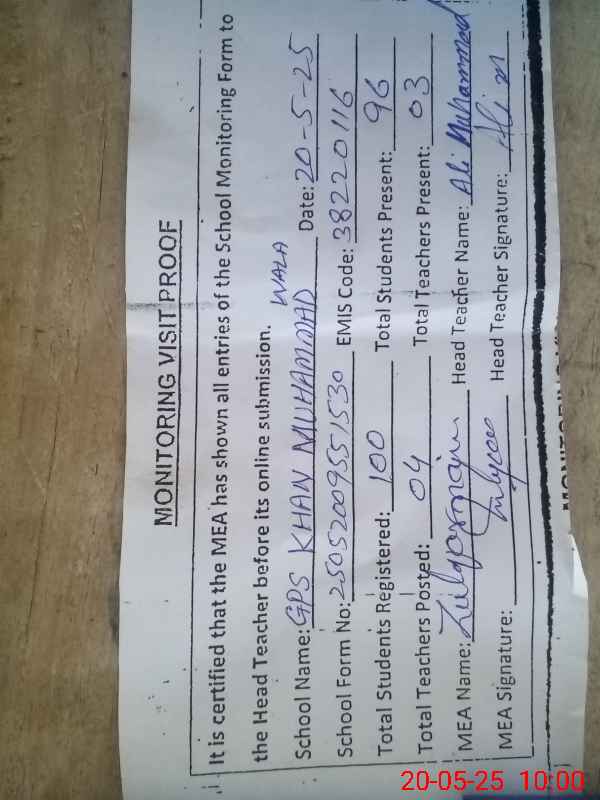 MONITORING VISIT PROOF
It is certified that the MEA has shown all entries of the School Monitoring Form to
the Head Teacher before its online submission.
School Name: GPS KHAN MUHAMMAD WALA Date: 20-5-25
School Form No: 25052009551530 EMIS Code: 38220116
Total Students Registered: 100 Total Students Present: 96
Total Teachers Posted: 04 Total Teachers Present: 03
MEA Name: Head Teacher Name: Ali Muhammad
MEA Signature: Head Teacher Signature: Ali m
20-05-25 10:00